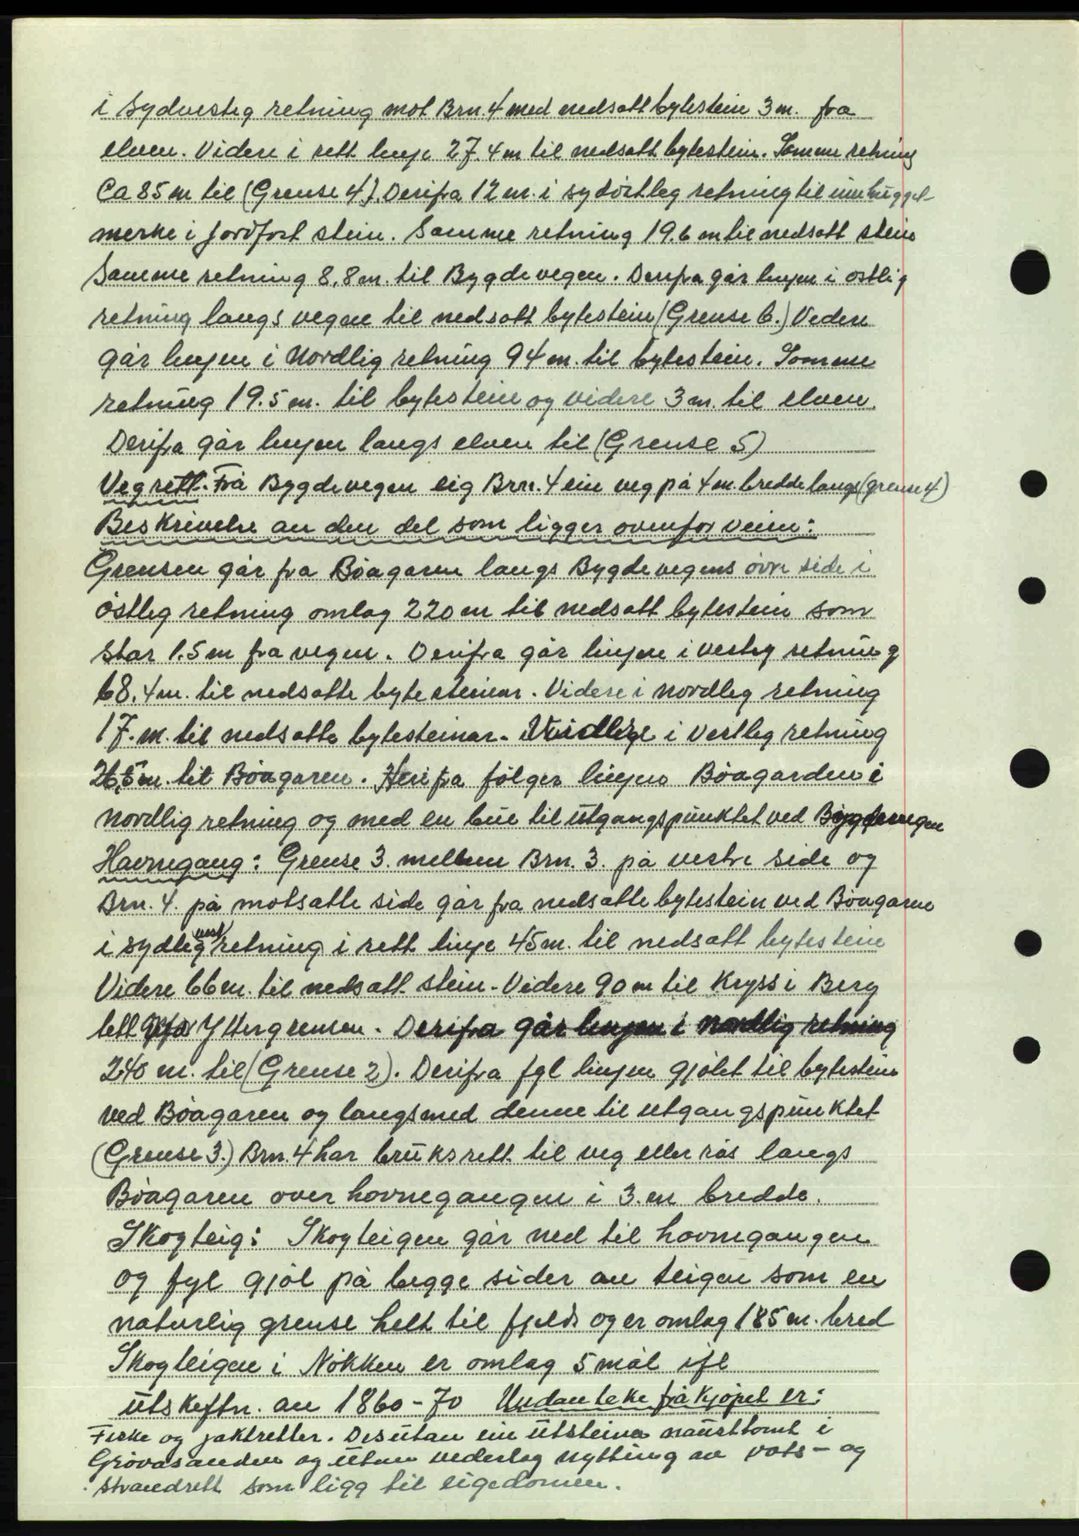 i Sydvesteg retning mot Brn. 4 med nedsatt bytestein 3 m. fra
elven. Videre i rett linje 27.4 m til nedsatt bytestein. Samme retning
Ca 85 m til (Grense 4). Derifra 12 m. i sydöstleg retning til innhuggel-
merke i jordfast stein. Samme retning 19.6 m til nedsatt stein
Samme retning 8,8 m. til Bygdevegen. Derifra går linjen i ostlig
retning langs vegen til nedsatt bytestein (Grense 6.) Videre
går linjen i Nordlig retning 94 m. til bytestein. Samme
retning 19.5 m. til bytestein og videre 3 m. til elven.
Derifra går linjen langs elven til (Grense 5)
Vegrett. Frå Bygdevegen eig Brn. 4 ein veg på 4 m. bredde langs (grense 4)
Beskrivelse av den del som ligger ovenfor veien:
Grensen går fra Bøagaren langs Bygdevegens övre side i
östleg retning omlag 220 m til nedsatt bytestein som
star 1.5 m fra vegen. Derifra går linjen i vestleg retning
68.4 m. til nedsatte bytesteinar. Videre i nordleg retning
17. m. til nedsatte bytesteinar. i Vestleg retning
26,5 m. til Bøagaren. Herifra følger linjene Bøagarden i
nordlig retning og med en bue til utgangspunktet ved Bygdevegen
Havnegang: Grense 3. mellem Brn. 3. på vestre side og
Brn. 4. på motsatte side går fra nedsatte bytestein ved Bøagarne
i sydleg vest retning i rett linje 45 m. til nedsatt bytestein
Videre 66 m. til nedsatt stein. Videre 90 m til Kryss i Berg
Yttergrensen. Derifra går linjen i nordlig retning
240 m. til (Grense 2). Derifra fyl linjen gjølet til bytestein
ved Bøagaren og langsmed denne til utgangspunktet
(Grense 3.) Brn. 4 har bruksrett til veg eller rås langs
Bøagaren over hovnegangen i 3. m bredde.
Skogteig: Skogteigen går ned til hovnegangen
og fyl gjøl på begge sider av teigen som en
naturlig grense helt til fjells og er omlag 185 m. bred
Skogteigen i Nökken er omlag 5 mål ifl
utskeftn. av 1860-70 Undanteke frå kjøpet er:
Fiske og jaktretter. Desutan ein utsteina nausttomt i
Grövasanden og utan vederlag nytting av vats- og
strandrett som ligg til eigedomen.